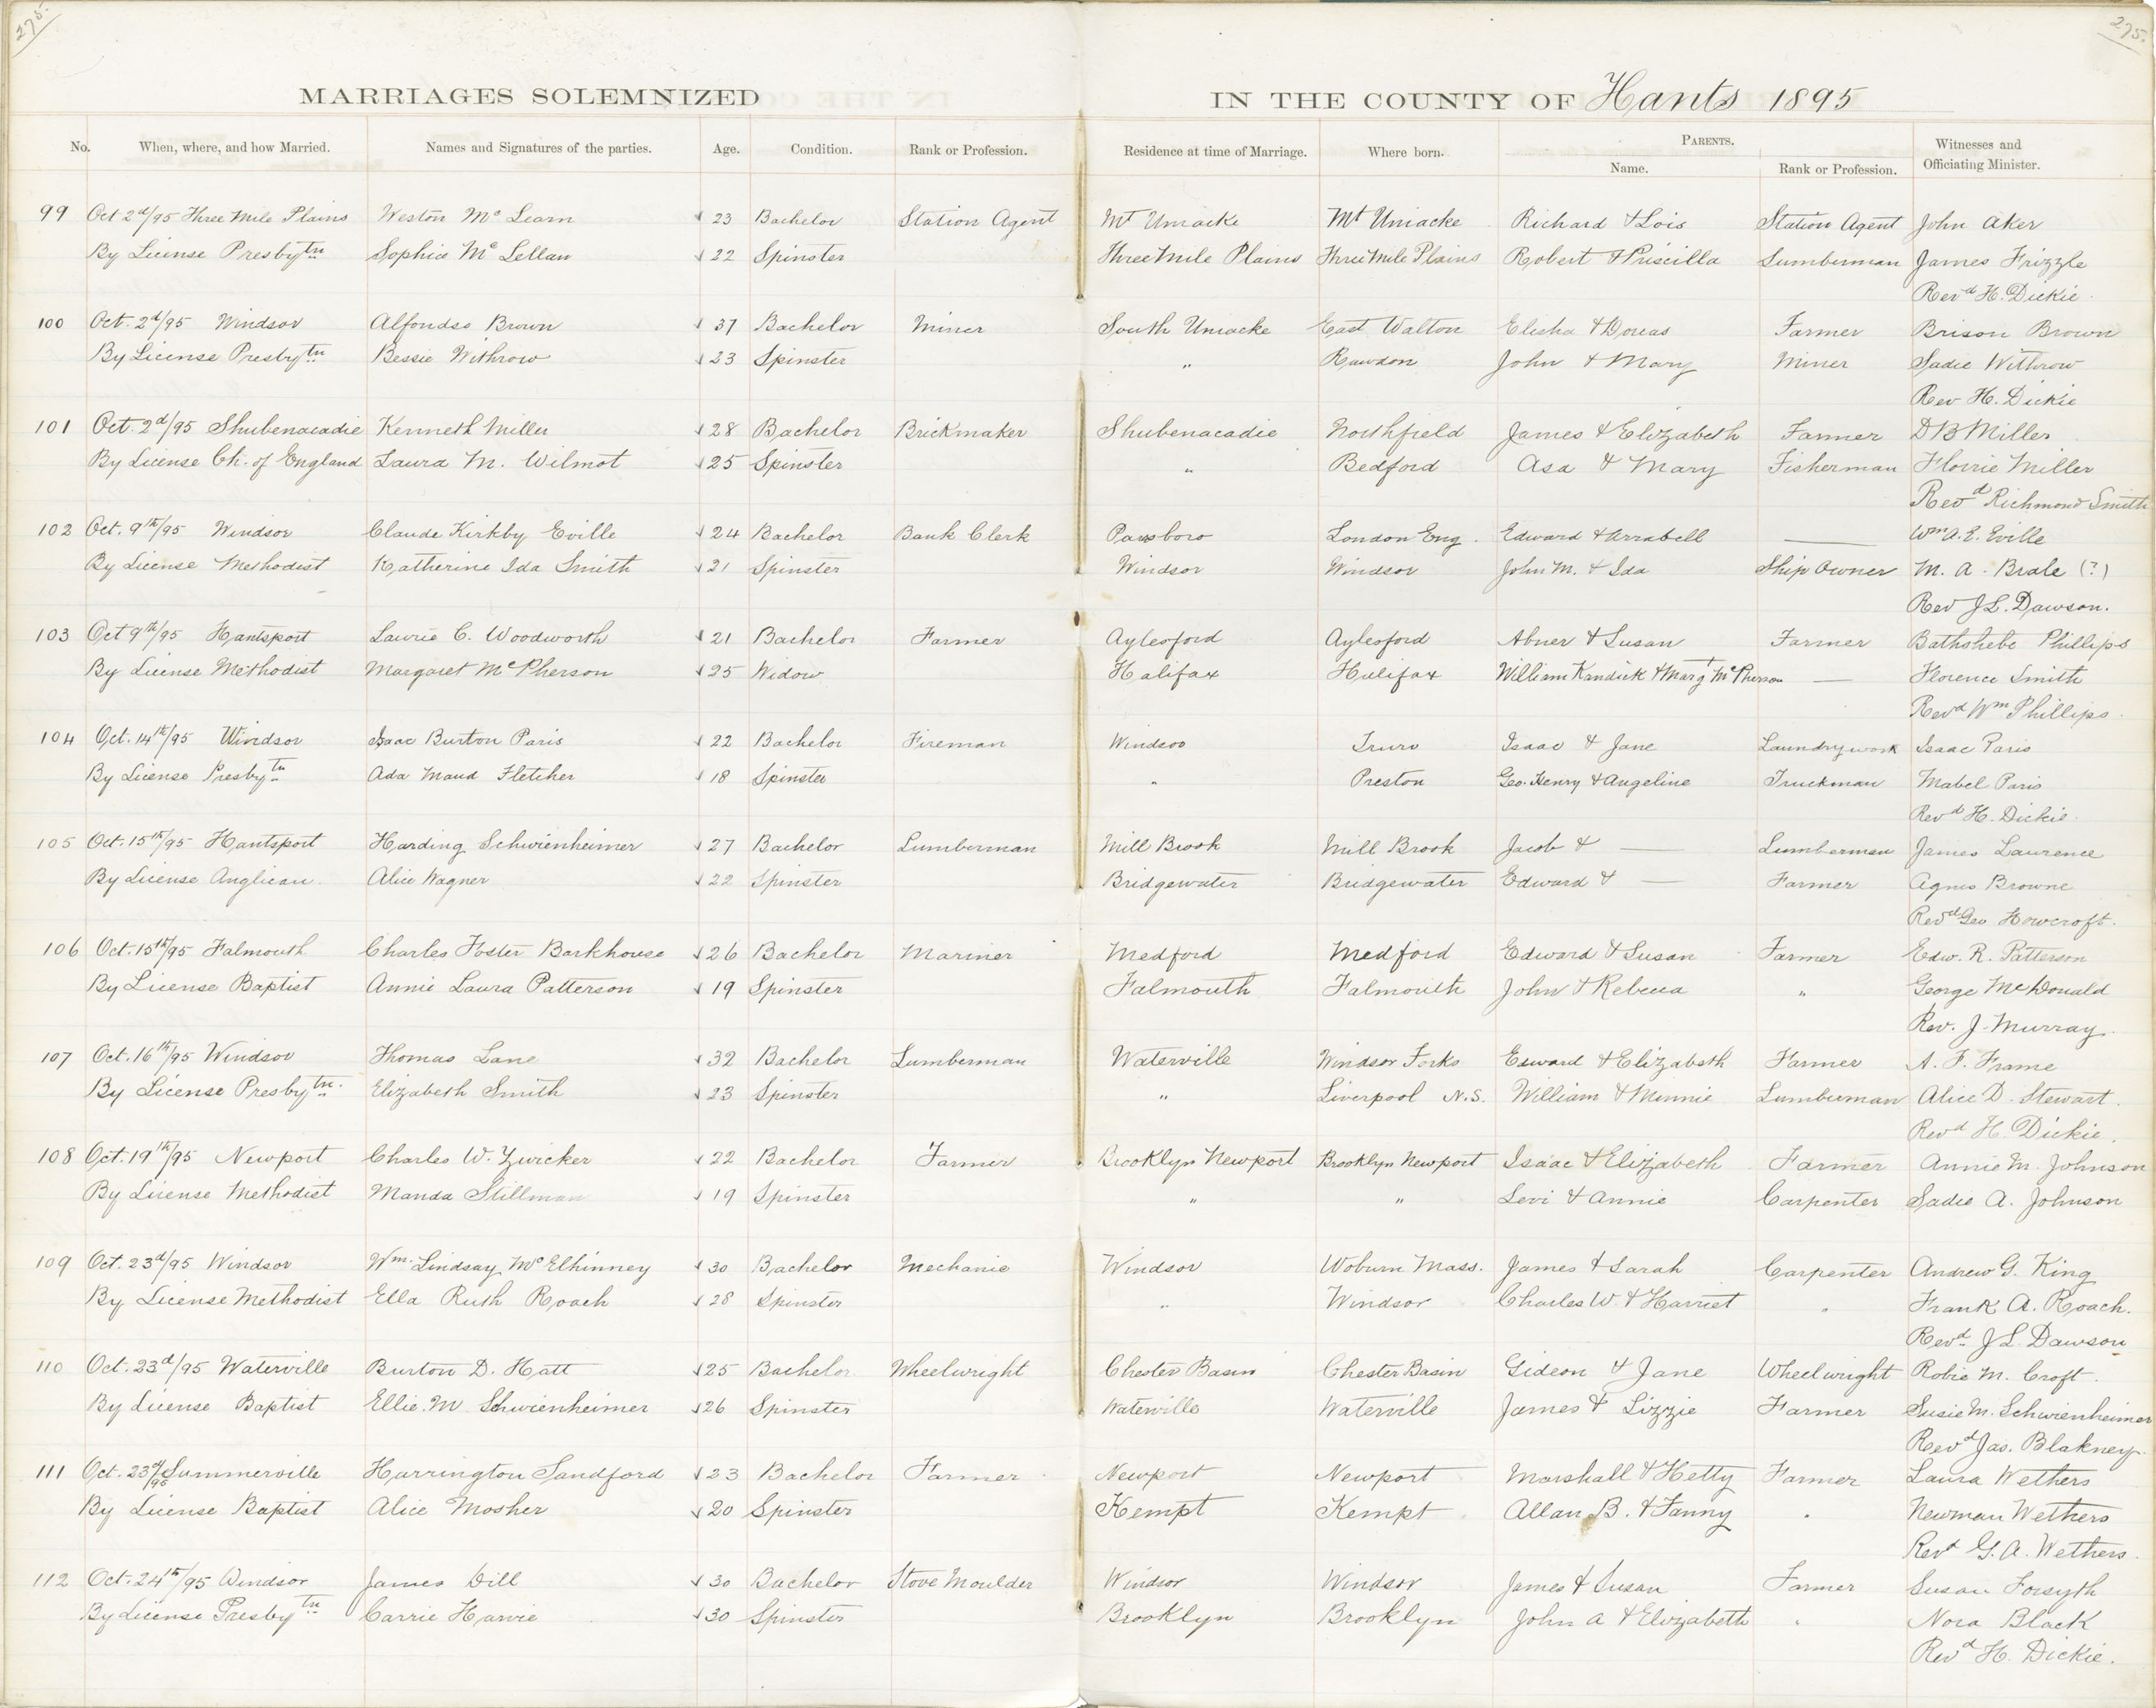 275.
275.
MARRIAGES SOLEMNIZED IN THE COUNTY OF Hants 1895
No. When, where, and how Married. Names and Signatures of the parties. Age. Condition. Rank or Profession. Residence at time of Marriage. Where born. PARENTS. Name. Rank or Profession. Witnesses and Officiating Minister.
99 Oct 2d/95 Three Mile Plains Weston Mc Learn 23 Bachelor Station Agent Mt Uniacke Mt Uniacke Richard & Lois Station Agent John Aker
By License Presbytn Sophia Mc Lellan 22 Spinster Three Mile Plains Three Mile Plains Robert & Priscilla Lumberman James Frizzle
Revd H. Dickie.
100 Oct. 2d/95 Windsor Alfondso Brown 37 Bachelor Miner South Uniacke East Walton Elisha & Dorcas Farmer Brison Brown
By License Presbytn Bessie Withrow 23 Spinster " Rawdon John & Mary Miner Sadie Withrow
Rev H. Dickie
101 Oct. 2d/95 Shubenacadie Kenneth Miller 28 Bachelor Brickmaker Shubenacadie Northfield James & Elizabeth Farmer D B Miller
By License Ch. of England Laura M. Wilmot 25 Spinster " Bedford Asa & Mary Fisherman Florrie Miller
Revd Richmond Smith
102 Oct. 9th/95 Windsor Claude Kirkby Eville 24 Bachelor Bank Clerk Parsboro London Eng. Edward & Arrabell — Wm A. E. Eville
By License Methodist Katherine Ida Smith 21 Spinster Windsor Windsor John M. & Ida Ship Owner M. A. Brale (?)
Rev J L. Dawson.
103 Oct 9th/95 Hantsport Laurie C. Woodworth 21 Bachelor Farmer Aylesford Aylesford Abner & Susan Farmer Bathshebe Phillips
By License Methodist Margaret McPherson 25 Widow Halifax Halifax William Kandick & Margt McPherson — Florence Smith
Revd Wm Phillips.
104 Oct. 14th/95 Windsor Isaac Burton Paris 22 Bachelor Fireman Windsor Truro Isaac & Jane Laundry work Isaac Paris
By License Presbytn Ada Maud Fletcher 18 Spinster " Preston Geo. Henry & Angeline Truckman Mabel Paris
Revd H. Dickie.
105 Oct. 15th/95 Hantsport Harding Schwienheimer 27 Bachelor Lumberman Mill Brook Mill Brook Jacob & — Lumberman James Laurence
By License Anglican. Alice Wagner 22 Spinster Bridgewater Bridgewater Edward & — Farmer Agnes Browne
Revd Geo Howcroft.
106 Oct. 15th/95 Falmouth Charles Foster Barkhouse 26 Bachelor Mariner Medford Medford Edward & Susan Farmer Edw. R. Patterson
By License Baptist Annie Laura Patterson 19 Spinster Falmouth Falmouth John & Rebecca " George McDonald
Rev. J. Murray.
107 Oct. 16th/95 Windsor Thomas Lane 32 Bachelor Lumberman Waterville Windsor Forks Edward & Elizabeth Farmer A. F. Frame
By License Presbytn. Elizabeth Smith 23 Spinster " Liverpool N.S. William & Minnie Lumberman Alice D. Stewart.
Revd H. Dickie.
108 Oct. 19th/95 Newport Charles W. Zwicker 22 Bachelor Farmer Brooklyn Newport Brooklyn Newport Isaac & Elizabeth Farmer Annie M. Johnson
By License Methodist Manda Stillman 19 Spinster " " Levi & Annie Carpenter Sadie A. Johnson
109 Oct. 23d/95 Windsor Wm. Lindsay McElhinney 30 Bachelor Mechanic Windsor Woburn Mass. James & Sarah Carpenter Andrew G. King
By License Methodist Ella Ruth Roach 28 Spinster " Windsor Charles W. & Harriet " Frank A. Roach.
Revd. J L. Dawson
110 Oct. 23d/95 Waterville Burton D. Hatt 25 Bachelor Wheelwright Chester Basin Chester Basin Gideon & Jane Wheelwright Robie M. Croft.
By License Baptist Ellie. M Schwienheimer 26 Spinster Waterville Waterville James & Lizzie Farmer Susie M. Schwienheimer
Revd Jas. Blakney.
111 Oct. 23d/95 Summerville Harrington Sandford 23 Bachelor Farmer Newport Newport Marshall & Hetty Farmer Laura Wethers
By License Baptist Alice Mosher 20 Spinster Kempt Kempt Allan B. & Fanny " Newman Wethers
Revd G. A. Wethers.
112 Oct. 24th/95 Windsor James Dill 30 Bachelor Stove Moulder Windsor Windsor James & Susan Farmer Susan Forsyth
By License Presbytn Carrie Harvie 30 Spinster Brooklyn Brooklyn John A & Elizabeth " Nora Black
Revd H. Dickie.